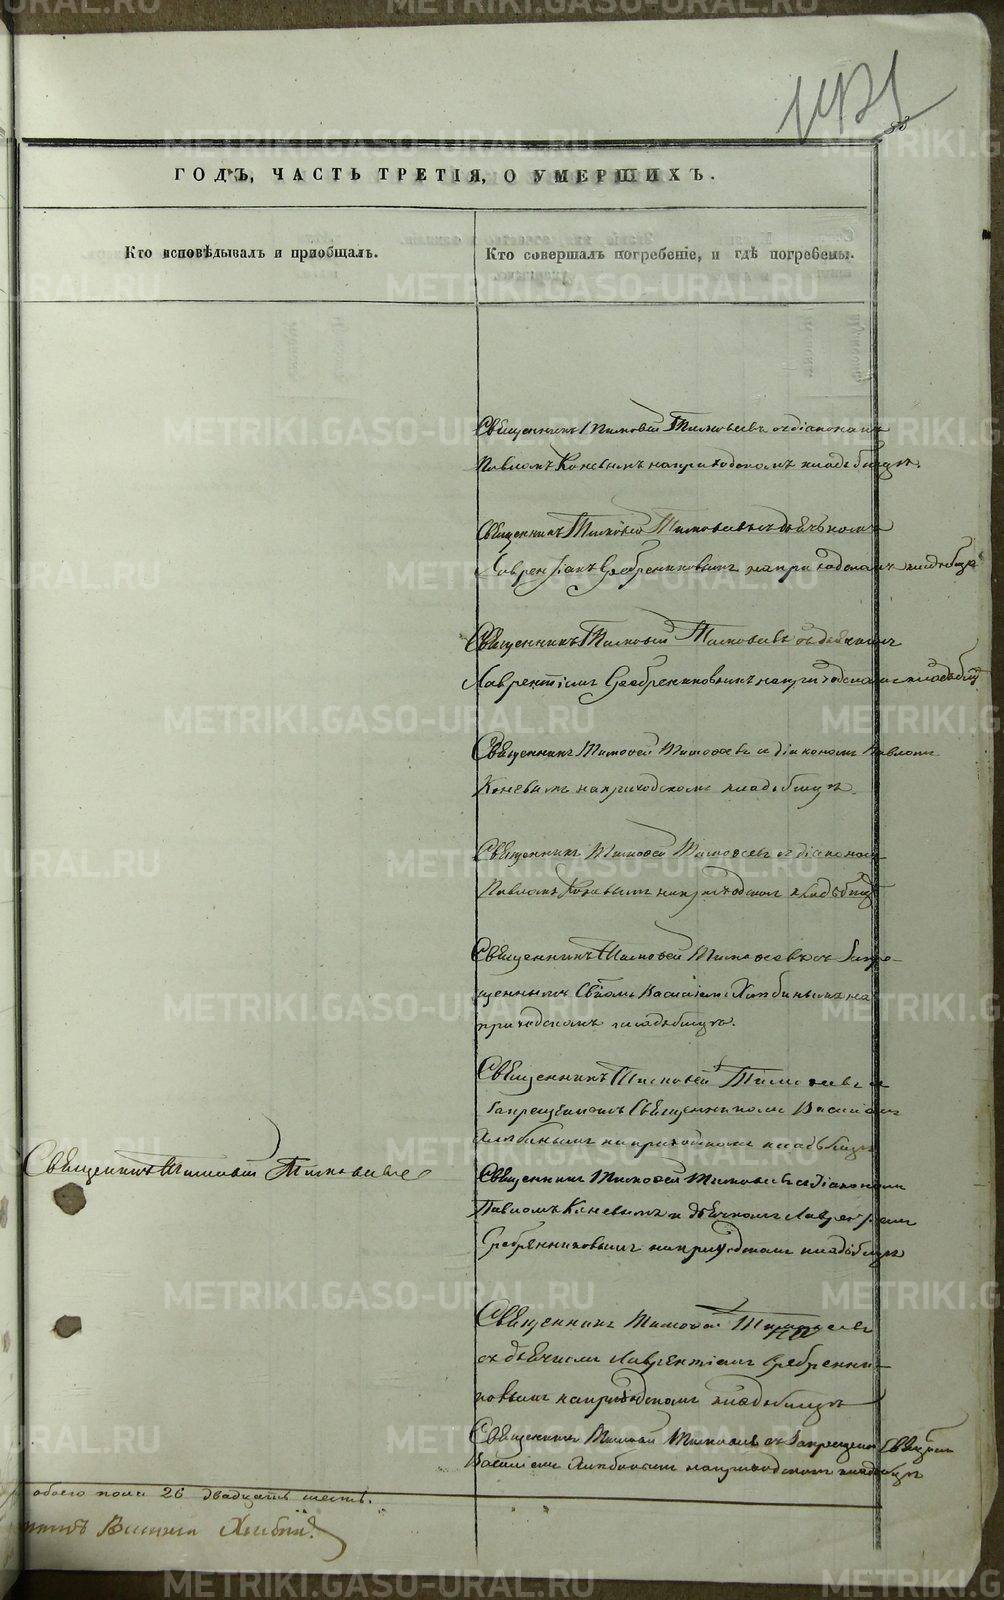 58
ГОДЪ, ЧАСТЬ ТРЕТІЯ, О УМЕРШИХЪ.
Кто исповѣдывалъ и приобщалъ.
Кто совершалъ погребеніе, и гдѣ погребены.
Священникъ Тимофей Тимофеевъ съ діакономъ
Павломъ Коневымъ на приходскомъ кладбищѣ.
Священникъ Тимофей Тимофеевъ съ дьячкомъ
Лаврентіемъ Серебрениковымъ на приходскомъ кладбищѣ
Священникъ Тимофей Тимофеевъ съ дьячкомъ
Лаврентіемъ Серебрениковымъ на приходскомъ кладбищѣ
Священникъ Тимофей Тимофеевъ съ діакономъ Павломъ
Коневымъ на приходскомъ кладбищѣ.
Священникъ Тимофей Тимофеевъ съ діакономъ
Павломъ Коневымъ на приходскомъ кладбищѣ
Священникъ Тимофей Тимофеевъ съ Запре-
щеннымъ Василіемъ на
приходскомъ кладбищѣ.
Священникъ Тимофей Тимофеевъ съ
Запрещеннымъ Священникомъ Василіемъ
на приходскомъ кладбищѣ
Священникъ Тимофей Тимофеевъ
Священникъ Тимофей Тимофеевъ съ діакономъ
Павломъ Коневымъ и дьячкомъ Лаврентіемъ
Серебренниковымъ на приходскомъ кладбищѣ
Священникъ Тимофей Тимофеевъ
съ дьячкомъ Лаврентіемъ Серебренни-
ковымъ на приходскомъ кладбищѣ
Священникъ Тимофей Тимофеевъ съ Запрещен
Василіемъ на приходскомъ кладбищѣ
обоего пола 26 двадцать шесть.
METRIKI.GASO-URAL.RU